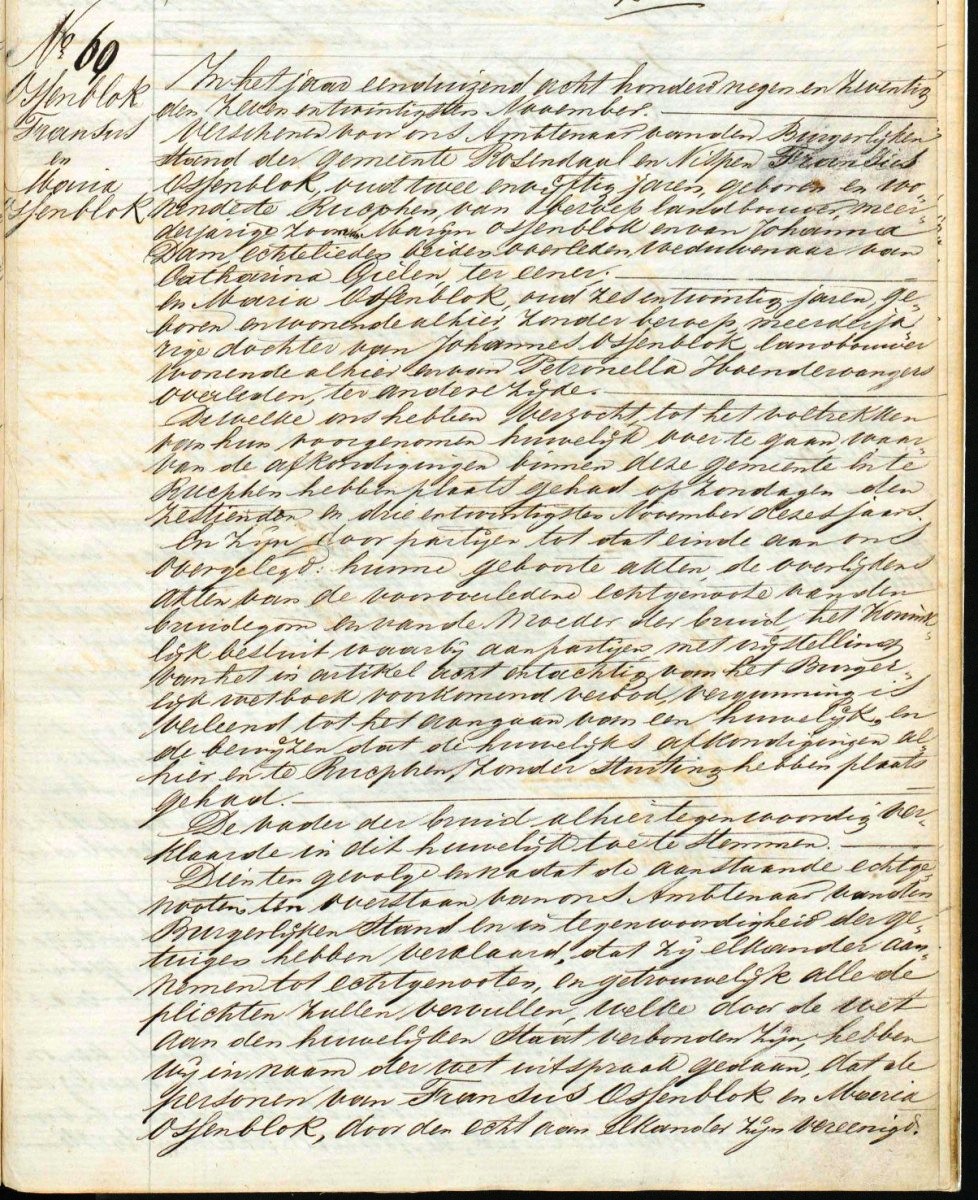 No 69
Ossenblok
Fransus
en
Maria
Ossenblok
In het jaar eenduizend acht honderd negen en zeventig
den zeven en twintigsten November.
Verschenen voor ons Ambtenaar van den Burgerlijken
Stand der gemeente Rosendaal en Nispen Fransus
Ossenblok, oud twee en vijftig jaren, geboren en wo-
nende te Rucphen, van beroep landbouwer, meer-
derjarige zoon van Marijn Ossenblok en van Johanna
Dam, echtelieden beiden overleden, weduwenaar van
Catharina Gielen, ter eener.
en Maria Ossenblok, oud zes en twintig jaren, ge-
boren en wonende alhier, zonder beroep, meerderja-
rige dochter van Johannes Ossenblok, landbouwer
wonende alhier en van Petronella Hoendervangers
overleden, ter andere zijde.
Dewelke ons hebben verzocht, tot het voltrekken
van hun voorgenomen huwelijk over te gaan waar-
van de afkondigingen binnen deze gemeente en te
Rucphen hebben plaats gehad op zondagen den
zestienden en drie en twintigsten November dezes jaars.
En zijn door partijen tot dat einde aan ons
overgelegd: hunne geboorte akten, de overlijdens
akten van de vooroverledene echtgenoote van den
bruidegom en van de moeder der bruid het Konink-
lijk besluit waarbij aan partijen, met vrijstelling
van het in artikel acht en tachtig van het Burger-
lijk wetboek voorkomend verbod, vergunning is
verleend tot het aangaan van een huwelijk, en
de bewijzen dat de huwelijks afkondigingen al-
hier en te Rucphen, zonder stuiting hebben plaats
gehad.
De vader der bruid alhier tegenwoordig ver-
klaarde in dit huwelijk toe te stemmen.
Dien ten gevolge en nadat de aanstaande echtge-
nooten, ten overstaan van ons Ambtenaar van den
Burgerlijken Stand en in tegenwoordigheid der ge-
tuigen hebben verklaard, dat zij elkander aan-
nemen tot echtgenooten, en getrouwelijk alle de
plichten zullen vervullen, welke door de wet
aan den huwelijken Staat verbonden zijn, hebben
wij in naam der wet uitspraak gedaan, dat de
personen van Fransus Ossenblok en Maria
Ossenblok, door den echt aan elkander zijn vereenigd.